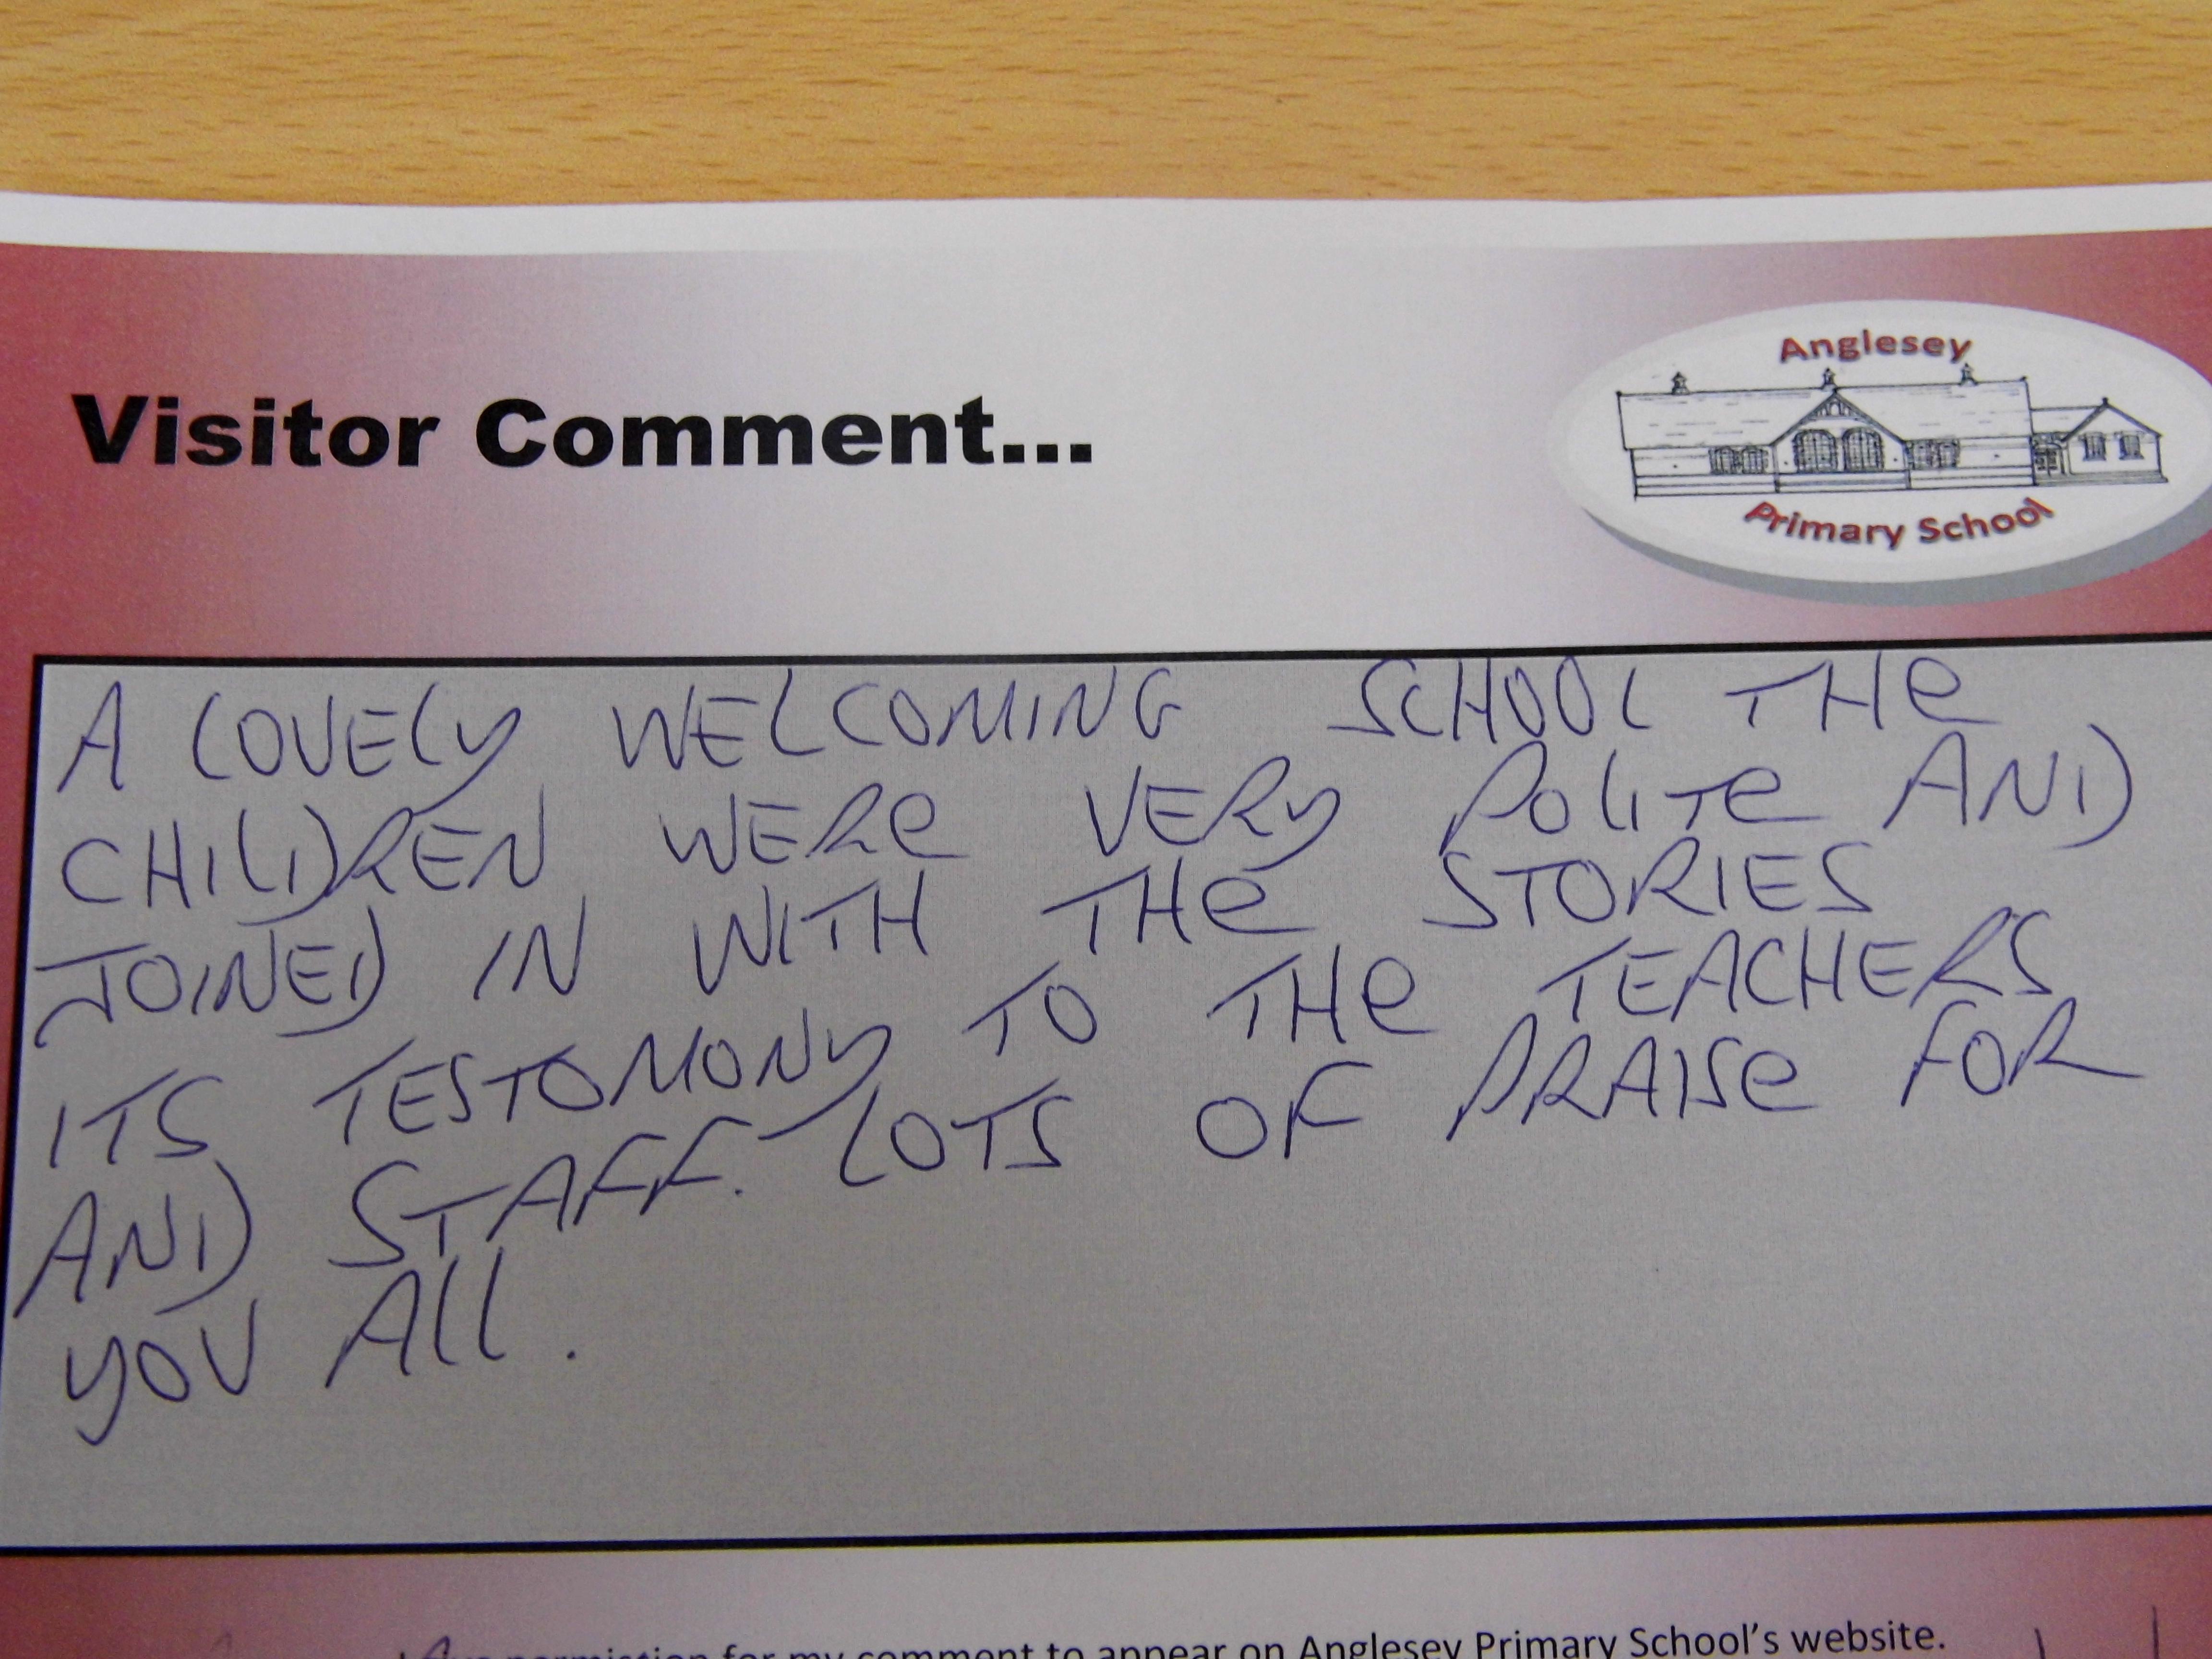 Anglesey
Primary School
Visitor Comment...
A LOVELY WELCOMING SCHOOL THE
CHILDREN WERE VERY POLITE AND
JOINED IN WITH THE STORIES
ITS TESTOMONY TO THE TEACHERS
AND STAFF. LOTS OF PRAISE FOR
YOU ALL.
permission for my comment to appear on Anglesey Primary School's website.